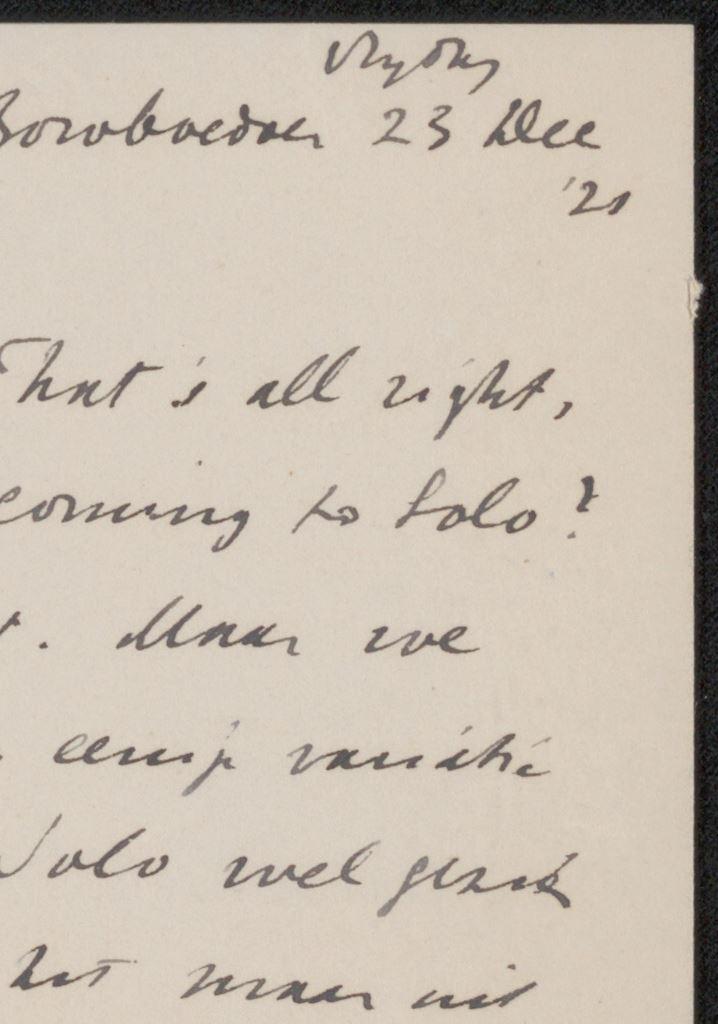 Vrijdag
Boroboedoer 23 Dec
'21
That's all right,
coming to Solo?
. Maar we
eenige variatie
Solo wel gezien
het maar uit